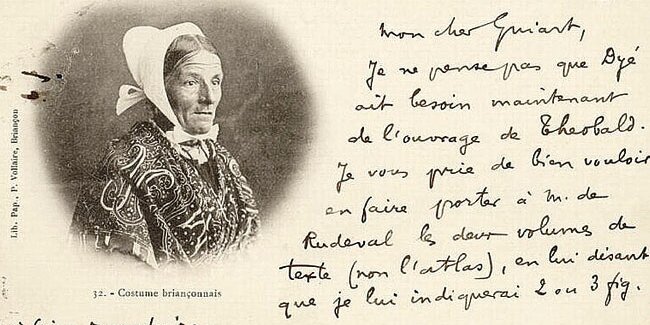 Lib. Pap., P. Vollaire, Briançon
32. - Costume briançonnais
Mon cher Guiart,
Je ne pense pas que Dyé
ait besoin maintenant
de l'ouvrage de Theobald.
Je vous prie de bien vouloir
en faire porter à M. de
Rudeval les deux volumes de
texte (non l'atlas), en lui disant
que je lui indiquerai 2 ou 3 fig.